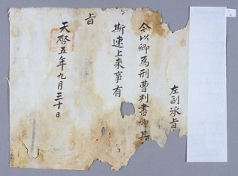 左副承旨
今以卿爲刑曹判書卿其
斯速上來事有
旨
天啓五年九月三十日